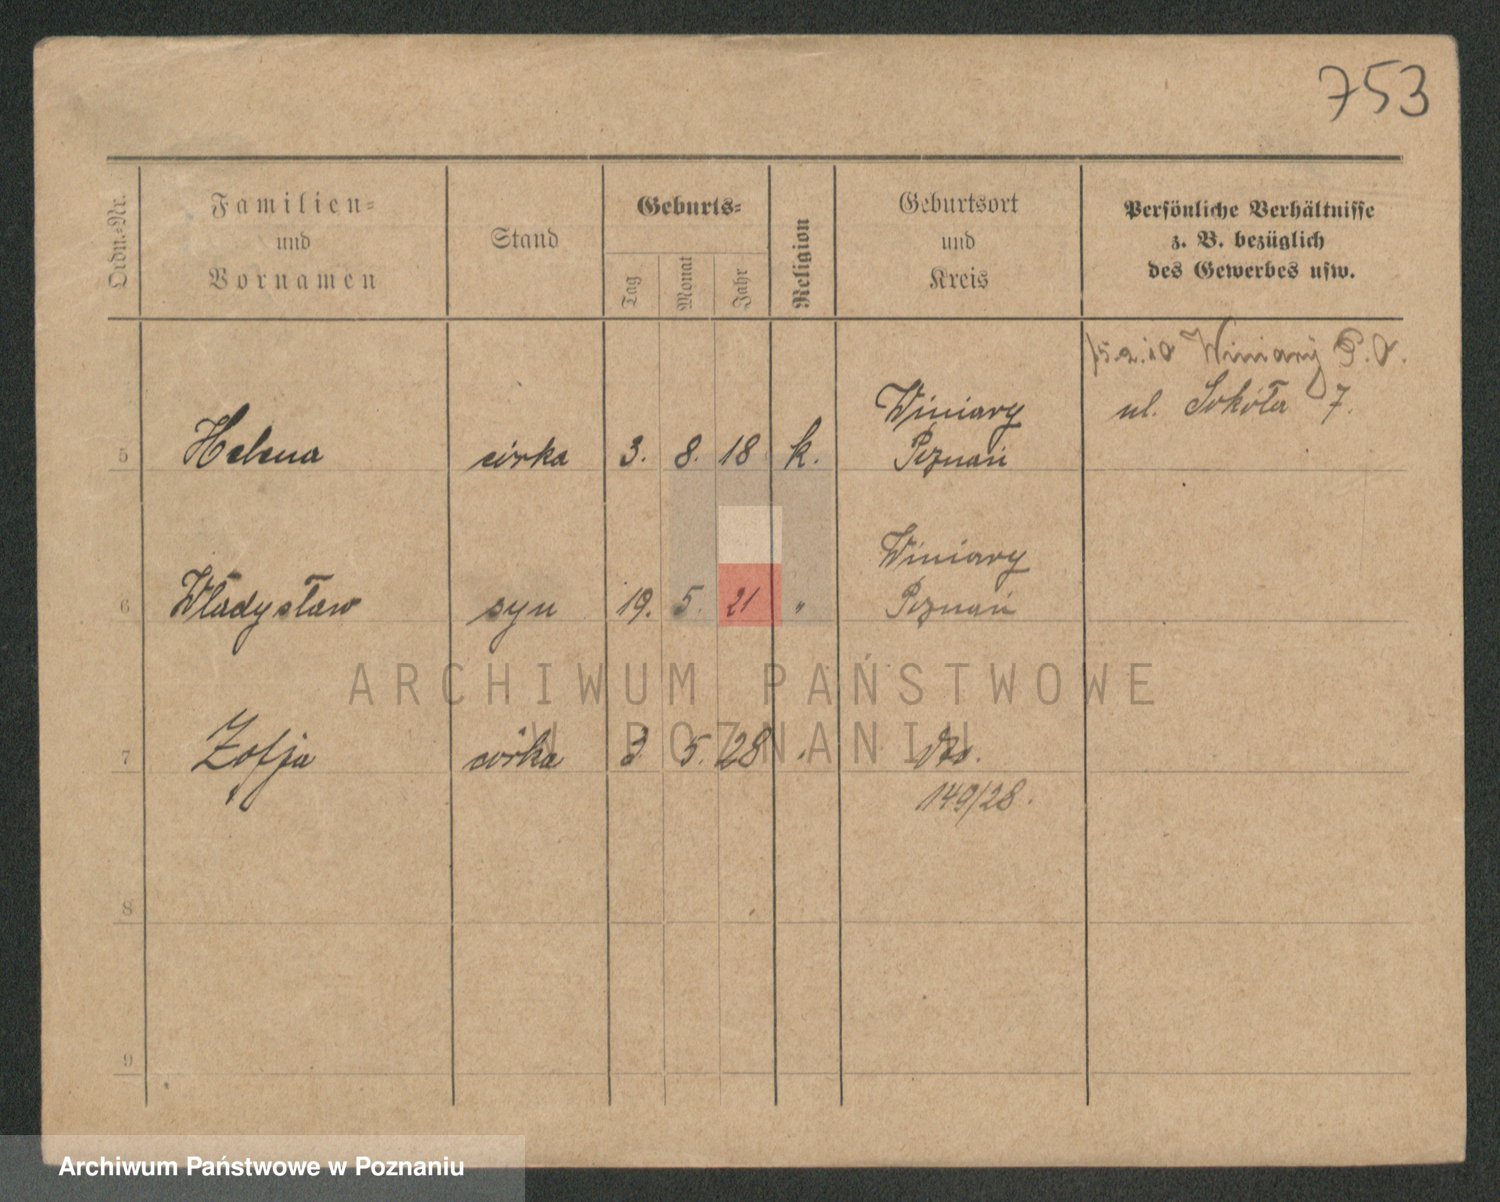 753
Ordn.-Nr.
Familien-
und
Vornamen
Stand
Geburts-
Tag
Monat
Jahr
Religion
Geburtsort
und
Kreis
Persönliche Verhältnisse
z. B. bezüglich
des Gewerbes usw.
Winiary P.O.
ul. Sokoła 7.
5 Helena córka 3. 8. 18 k. Winiary
Poznań
6 Władysław syn 19. 5. 21 " Winiary
Poznań
ARCHIWUM PAŃSTWOWE
W POZNANIU
7 Zofja córka 3 5. 28
149/28.
8
9
Archiwum Państwowe w Poznaniu